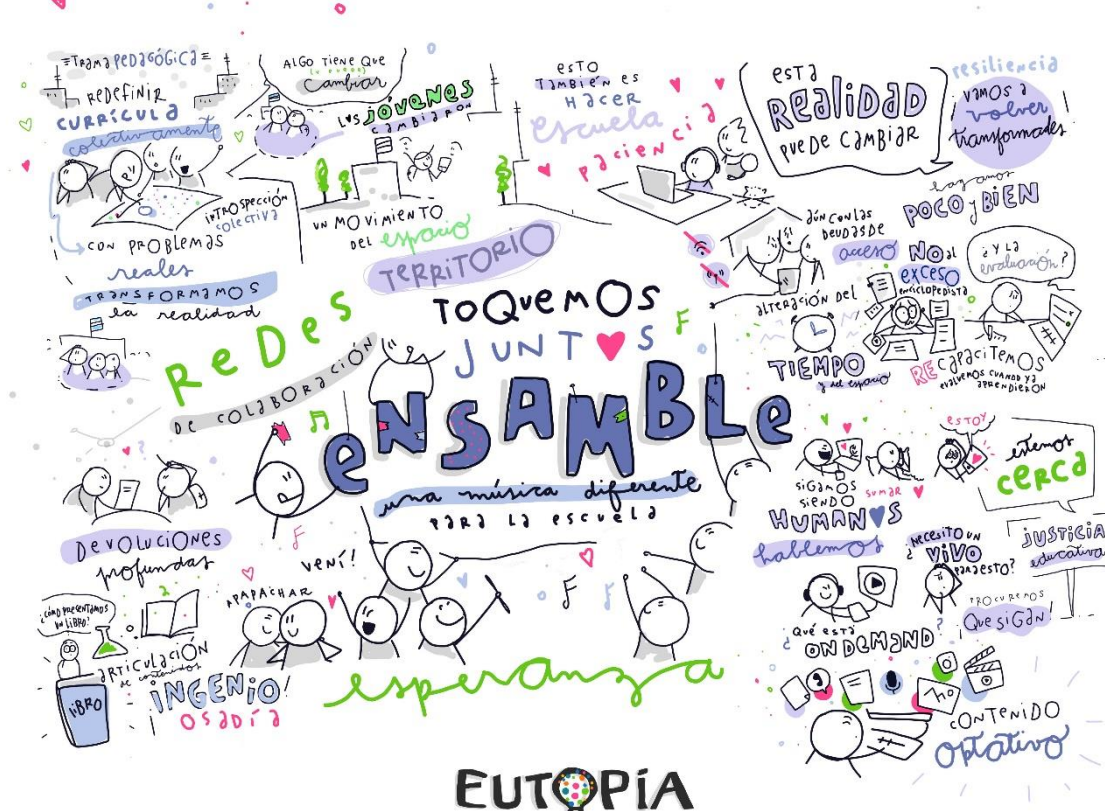 =TRAMA PEDAGÓGICA=
REDEFINIR
CURRÍCULA
colectivamente
CON PROBLEMAS
reales
TRANSFORMAMOS
la realidad
INTROSPECCIÓN
colectiva
ALGO TIENE QUE
cambiar
L♥S JÓVENES
CAMBIARON
UN MOVIMIENTO
DEL espacio
TERRITORIO
ESTO
TAMBIÉN ES
HACER
escuela
PACIENCIA
ESTA
REALIDAD
PUEDE CAMBIAR
resiliencia
VAMOS A
volver
transformades
hagamos
POCO y BIEN
AÚN CON LAS
DEUDAS DE
acceso
NO al
EXCESO
ENCICLOPEDISTA
¿Y LA
evaluación?
ALTERACIÓN DEL
TIEMPO
y del espacio
RECAPACITEMOS
EVALUEMOS CUANDO YA
APRENDIERON
REDES
DE COLABORACIÓN
TOQUEMOS
JUNT♥S
ENSAMBLE
una música diferente
PARA LA ESCUELA
DEVOLUCIONES
profundas
¿CÓMO PRESENTAMOS
UN LIBRO?
LIBRO
ARTICULACIÓN
de contenidos
INGENIO!
OSADÍA
APAPACHAR
VENÍ!
esperanza
SIGAMOS
SIENDO
HUMAN♥S
hablemos
SUMAR
ESTOY
estemos
CERCA
¿NECESITO UN
VIVO
PARA ESTO?
JUSTICIA
educativa
PROCUREMOS
QUE SIGAN
¿QUÉ ESTÁ
ON DEMAND?
CONTENIDO
optativo
EUTOPÍA